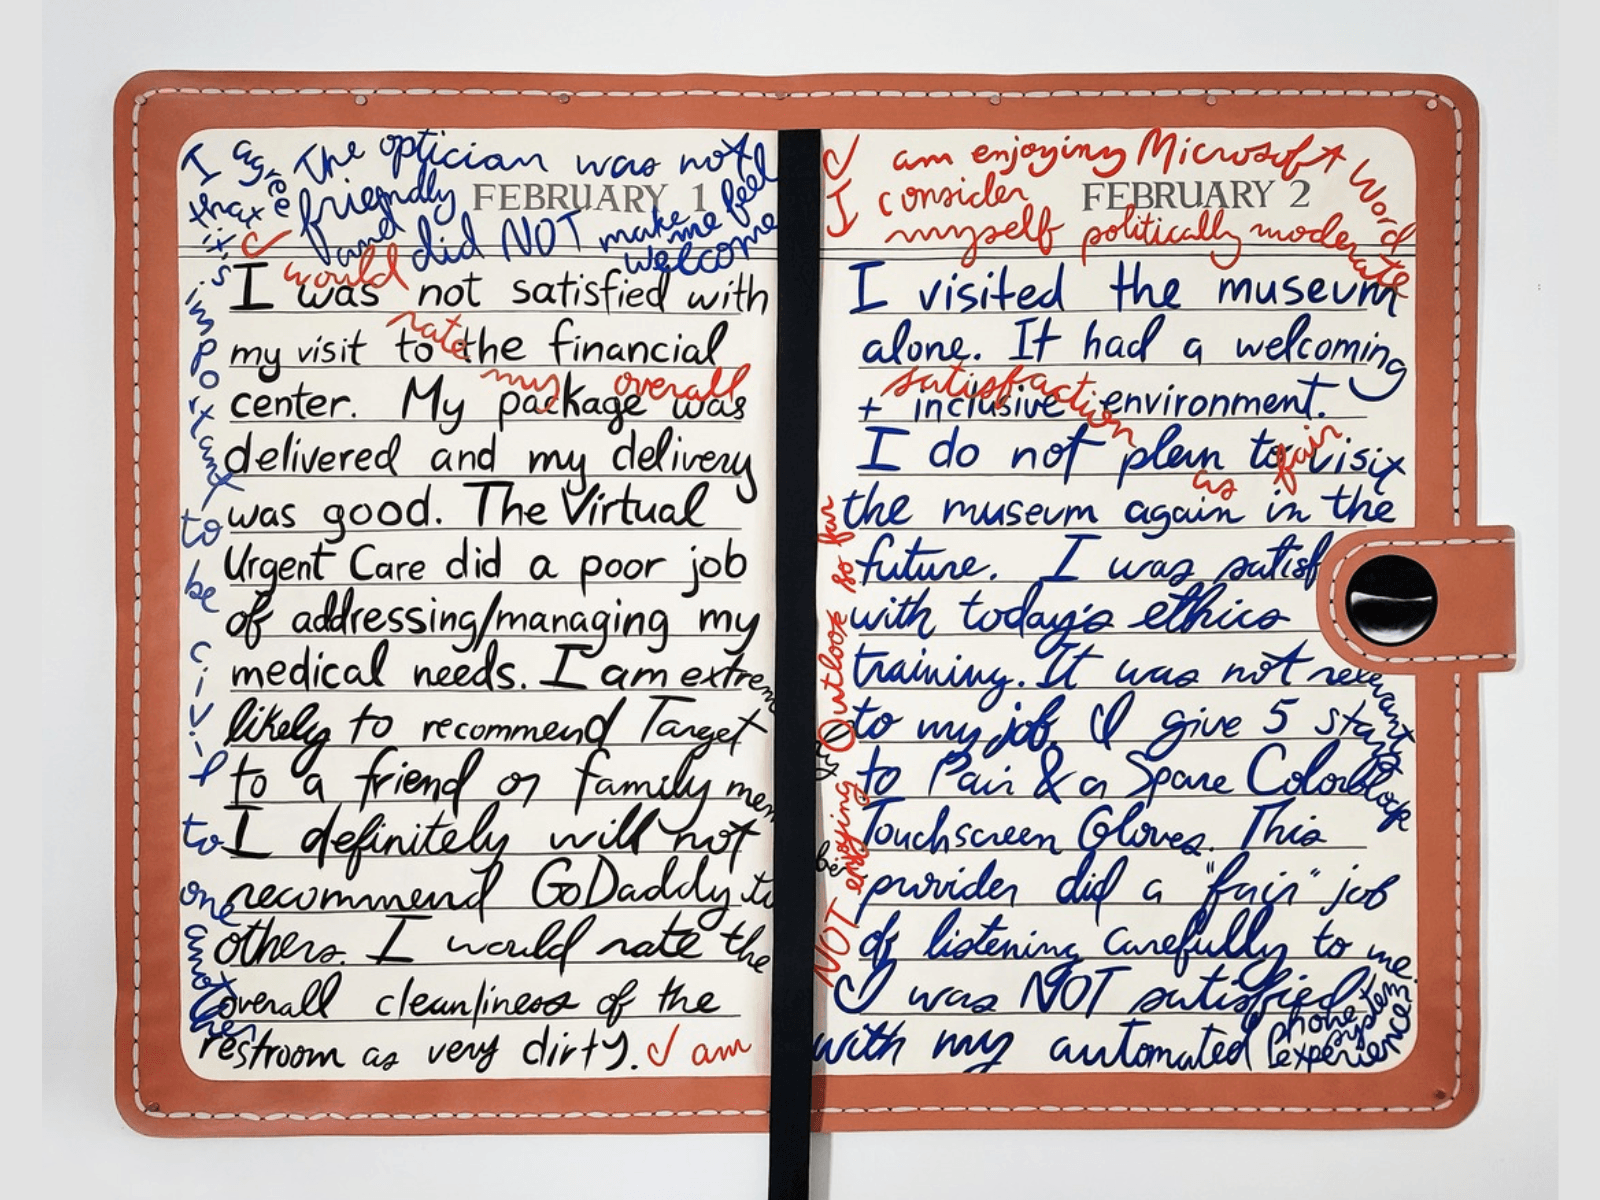 I agree that it's important to be civil to one another
The optician was not
friendly
and did NOT make me feel
welcome
FEBRUARY 1
I was not satisfied with
my visit to the financial
center. My package was
delivered and my delivery
was good. The Virtual
Urgent Care did a poor job
of addressing/managing my
medical needs. I am extrem
likely to recommend Target
to a friend or family mem
I definitely will not
recommend GoDaddy to
others. I would rate the
overall cleanliness of the
restroom as very dirty.
I would
rate
my overall
satisfaction
as fair
I am
NOT enjoying Outlook so far
I am enjoying Microsoft Word
I consider
myself politically moderate
FEBRUARY 2
I visited the museum
alone. It had a welcoming
+ inclusive environment.
I do not plan to visit
the museum again in the
future. I was satisf
with today's ethics
training. It was not relevant
to my job. I give 5 stars
to Pair & a Spare Colorblock
Touchscreen Gloves. This
provider did a "fair" job
of listening carefully to me.
I was NOT satisfied
with my automated phone system experience.